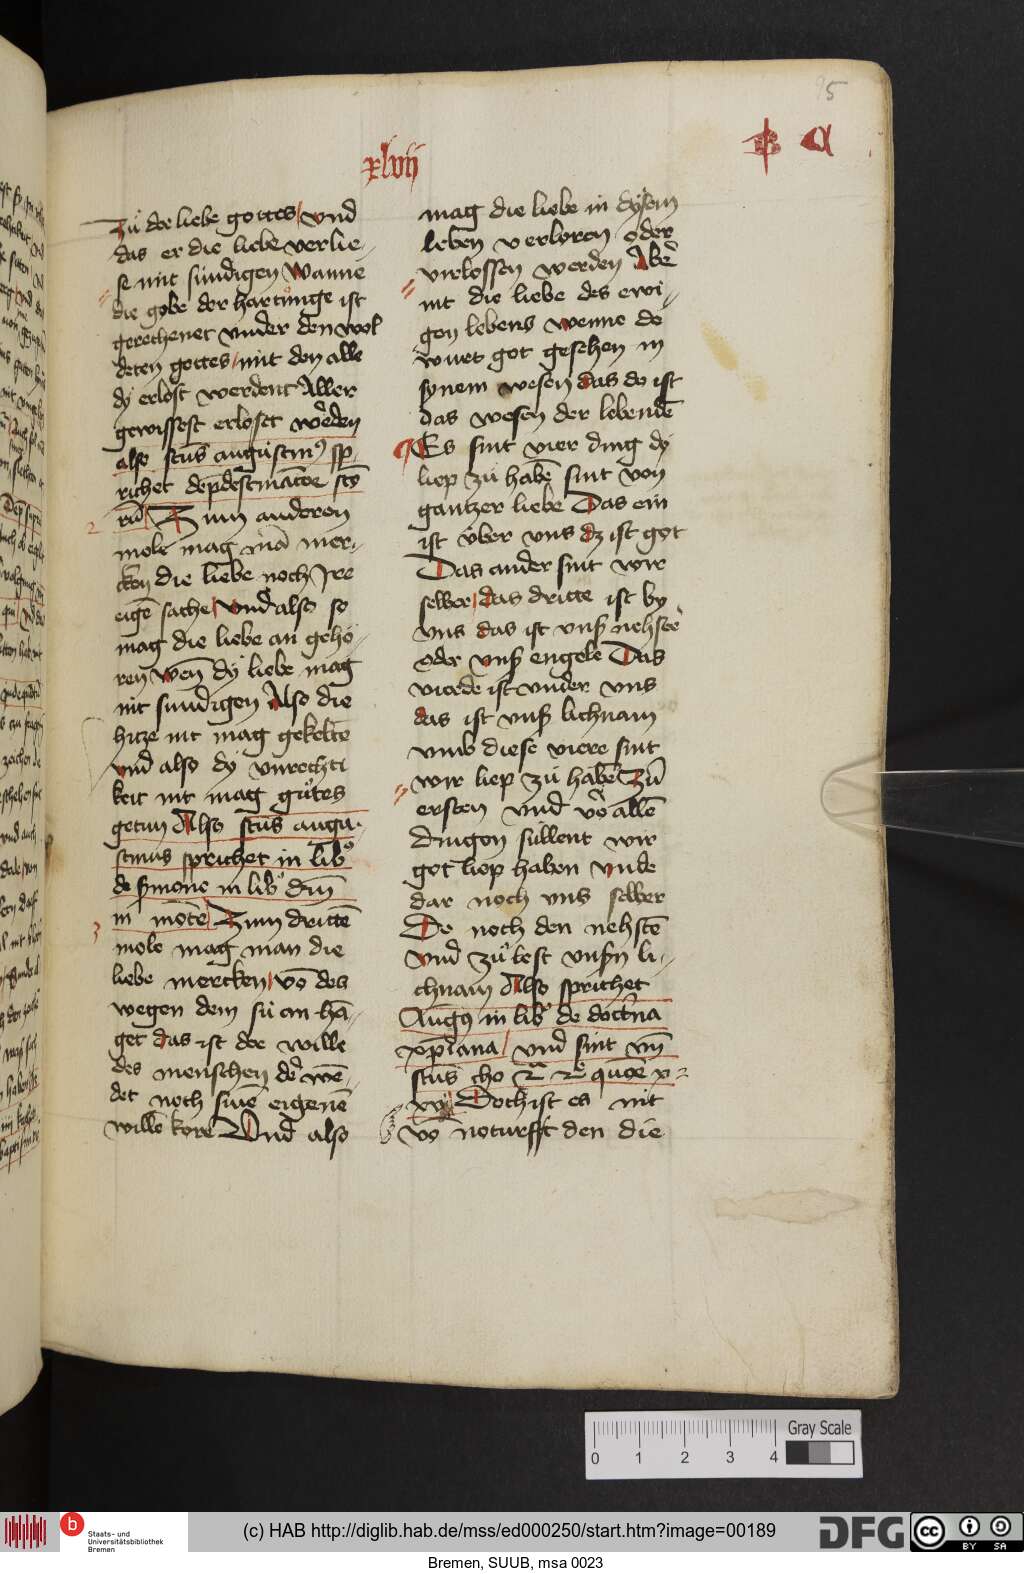 95
xlvij
B a
Zů der liebe gottes / vnd
das er die liebe verlie¬
se mit sündigen Wanne
die gobe der hartūnge ist
gerechenet vnder den wol
deten gottes / mit den alle
dÿ erlost werdent Aller
gewissest erloset wẽden
also scūs augustin9 sp¬
richet de
rū Zum anderen
mole mag mā mer¬
cken die liebe noch Ire
eigē sache / Vnd also so
mag die liebe an gehö¬
ren wen̄ dÿ liebe mag
nit sundigen Also die
hitze nit mag gekelte
vnd also dÿ vnrechti
keit nit mag gůtes
getun Also scūs augu¬
stinus sprichet in libo
de sermone in libo dm̄
in mōte Zum drittē
mole mag man die
liebe mercken / vō des
wegen dem sü an hā¬
get das ist der wille
des menschen de wē¬
det noch sinē eigenē
willē kore Vnd also
mag die liebe in dÿsem
leben verloren oder
virlossen werden Abe
nit die liebe des ewi¬
gen lebens wenne do
wurt got gesehen in
synem wesen das do ist
das wesen der lebendē
Es sint vier ding dÿ
liep zü habē sint von
gantzer liebe Das ein
ist über vns dz ist got
Das ander sint wir
selber / das dritte ist by
vns das ist vnß nehste
oder vnß engele Das
vierde ist vnder vns
das ist vnß lichnam
vmb diese viere sint
wir liep zü habē Zū
ersten vnd vō allē
dingen sullent wir
got liep haben vnde
dar noch vns selber
De noch den nehstē
vnd zů lest vnsrn li¬
chnam Also sprichet
Aug9 in libo de doctrina
xp̄iana / vnd sint
scūs tho
xxv Doch ist es nit
vō noturfft den die
0 1 2 3 4
Gray Scale
b
Staats- und
Universitätsbibliothek
Bremen
(c) HAB http://diglib.hab.de/mss/ed000250/start.htm?image=00189
DFG
cc
BY SA
Bremen, SUUB, msa 0023